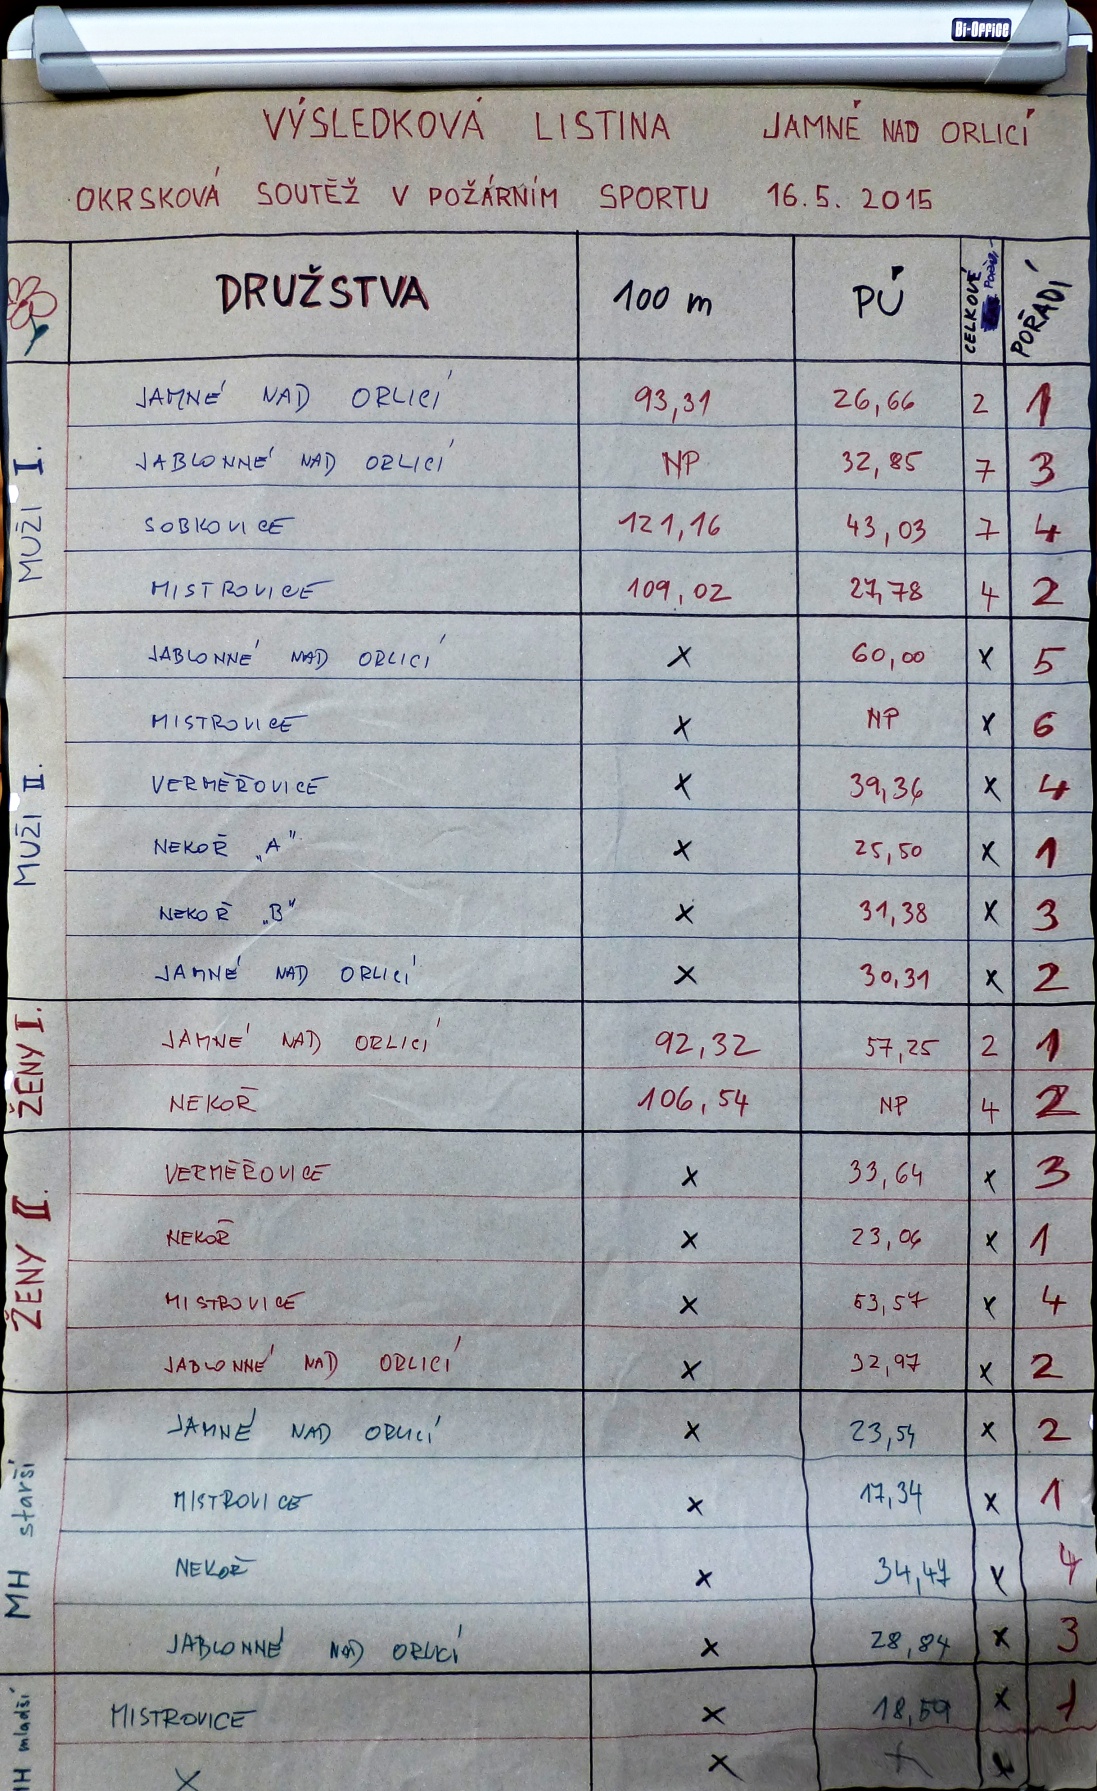 Bi-Office
VÝSLEDKOVÁ LISTINA JAMNÉ NAD ORLICÍ
OKRSKOVÁ SOUTĚŽ V POŽÁRNÍM SPORTU 16.5. 2015
DRUŽSTVA 100 m PÚ CELKOVÉ POŘADÍ
MUŽI I.
JAMNÉ NAD ORLICÍ 93,31 26,66 2 1
JABLONNÉ NAD ORLICÍ NP 32,85 7 3
SOBKOVICE 121,16 43,03 7 4
MISTROVICE 109,02 27,78 4 2
MUŽI II.
JABLONNÉ NAD ORLICÍ X 60,00 X 5
MISTROVICE X NP X 6
VERMĚŘOVICE X 39,36 X 4
NEKOŘ „A" X 25,50 X 1
NEKOŘ „B" X 31,38 X 3
JAMNÉ NAD ORLICÍ X 30,31 X 2
ŽENY I.
JAMNÉ NAD ORLICÍ 92,32 57,25 2 1
NEKOŘ 106,54 NP 4 2
ŽENY II.
VERMĚŘOVICE X 33,64 X 3
NEKOŘ X 23,06 X 1
MISTROVICE X 53,57 X 4
JABLONNÉ NAD ORLICÍ X 32,97 X 2
MH starší
JAMNÉ NAD ORLICÍ X 23,54 X 2
MISTROVICE X 17,34 X 1
NEKOŘ X 34,47 X 4
JABLONNÉ NAD ORLICÍ X 28,84 X 3
MH mladší
MISTROVICE X 18,59 X 1
X X X X